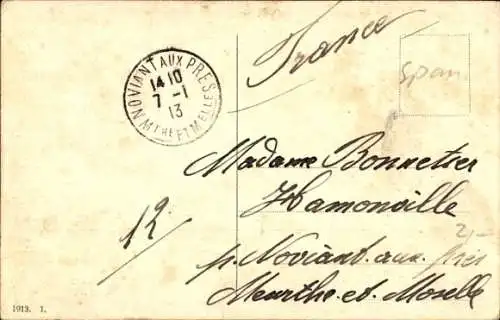 France
NOVIANT AUX PRES
14 10
7 -1
13
MTHE ET MELLE
Span.
Madame Bonnetier
Hamonville
12
2,-
p. Noviant. aux. prés
Meurthe. et. Moselle
1913. 1.